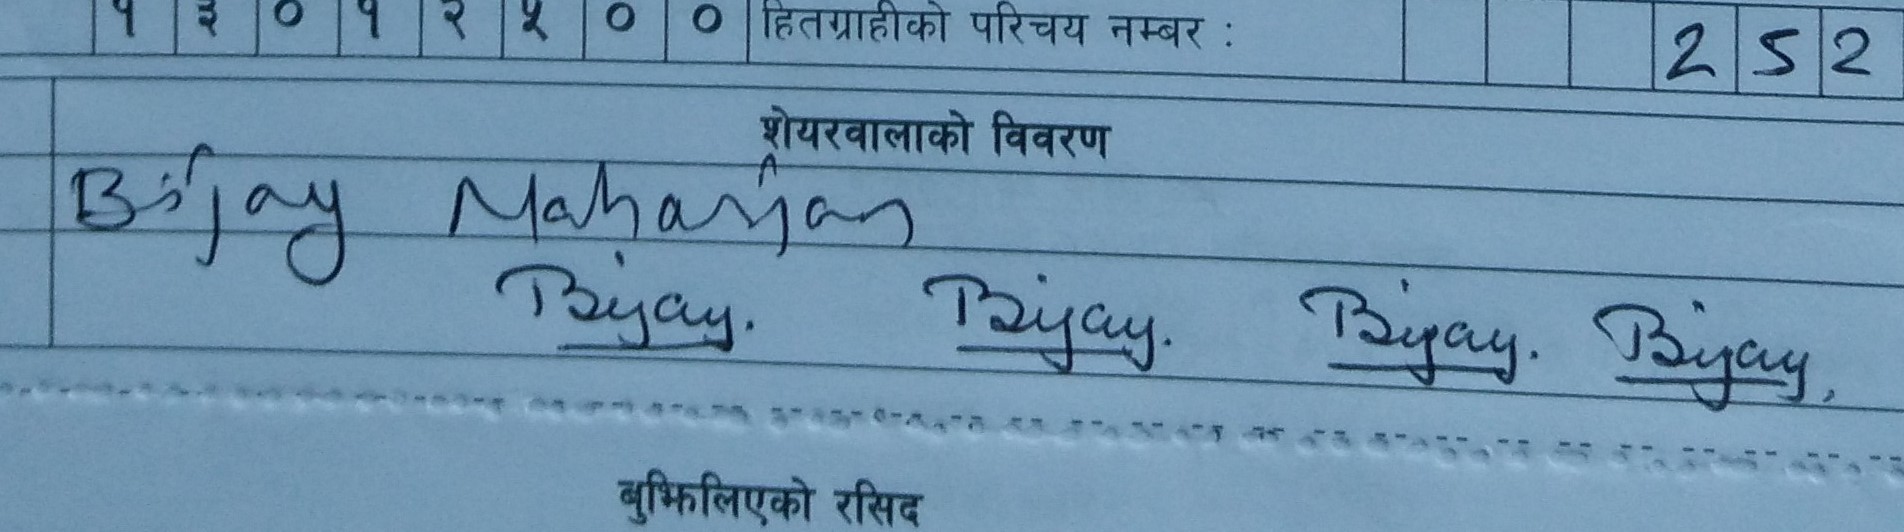 १ ३ ० १ २ ५ ० ० हितग्राहीको परिचय नम्बर : 2 5 2
शेयरवालाको विवरण
Bijay Maharjan
Bijay. Bijay. Bijay. Bijay,
बुझिलिएको रसिद